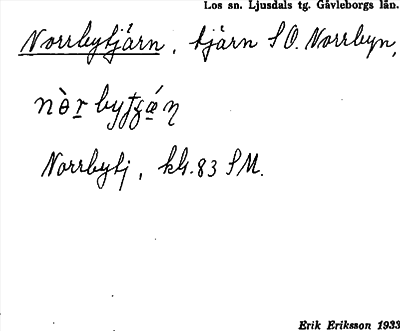 Los sn. Ljusdals tg. Gävleborgs län.
Norrbytjärn, tjärn SO. Norrbyn,
Norrbytj, kbl. 83 SM.
Erik Eriksson 1933